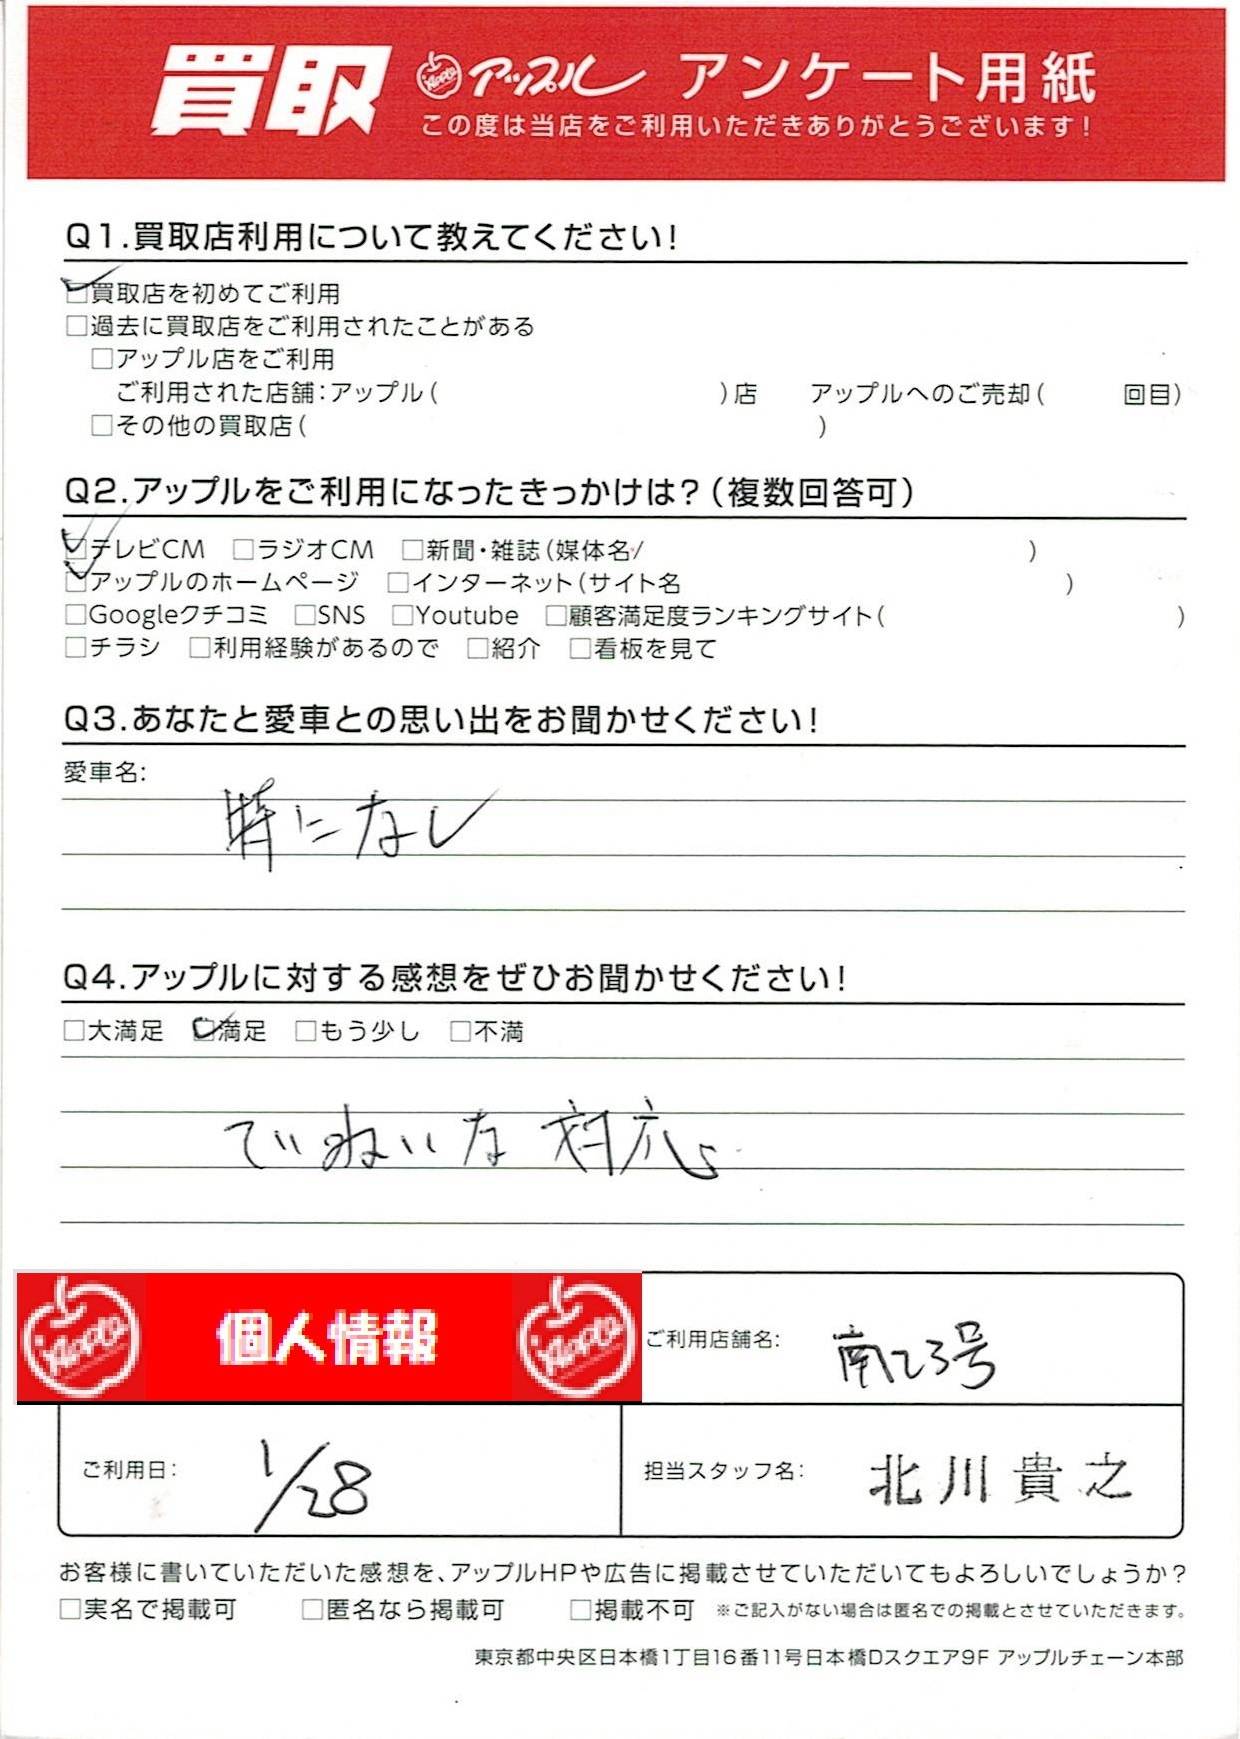 買取 Apple アップル アンケート用紙
この度は当店をご利用いただきありがとうございます！
Q1.買取店利用について教えてください！
□買取店を初めてご利用
□過去に買取店をご利用されたことがある
□アップル店をご利用
ご利用された店舗：アップル（ ）店 アップルへのご売却（ 回目）
□その他の買取店（ ）
Q2.アップルをご利用になったきっかけは？（複数回答可）
□テレビCM □ラジオCM □新聞・雑誌（媒体名/ ）
□アップルのホームページ □インターネット（サイト名 ）
□Googleクチコミ □SNS □Youtube □顧客満足度ランキングサイト（ ）
□チラシ □利用経験があるので □紹介 □看板を見て
Q3.あなたと愛車との思い出をお聞かせください！
愛車名：
特になし
Q4.アップルに対する感想をぜひお聞かせください！
□大満足 □満足 □もう少し □不満
ていねいな対応。
Apple 個人情報 Apple
ご利用店舗名： 南23号
ご利用日： 1/28 担当スタッフ名： 北川貴之
お客様に書いていただいた感想を、アップルHPや広告に掲載させていただいてもよろしいでしょうか？
□実名で掲載可 □匿名なら掲載可 □掲載不可 ※ご記入がない場合は匿名での掲載とさせていただきます。
東京都中央区日本橋1丁目16番11号日本橋Dスクエア9F アップルチェーン本部